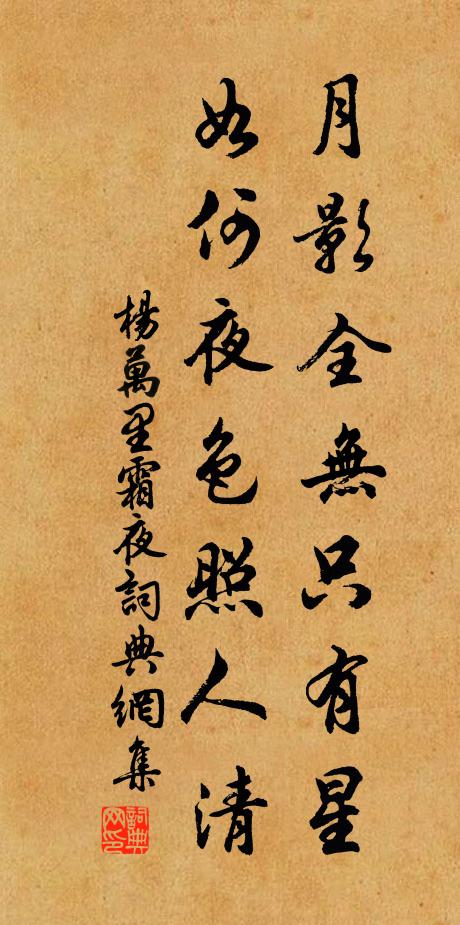 月影全無只有星
如何夜色照人清
楊萬里霜夜詞典網集
詞典網印